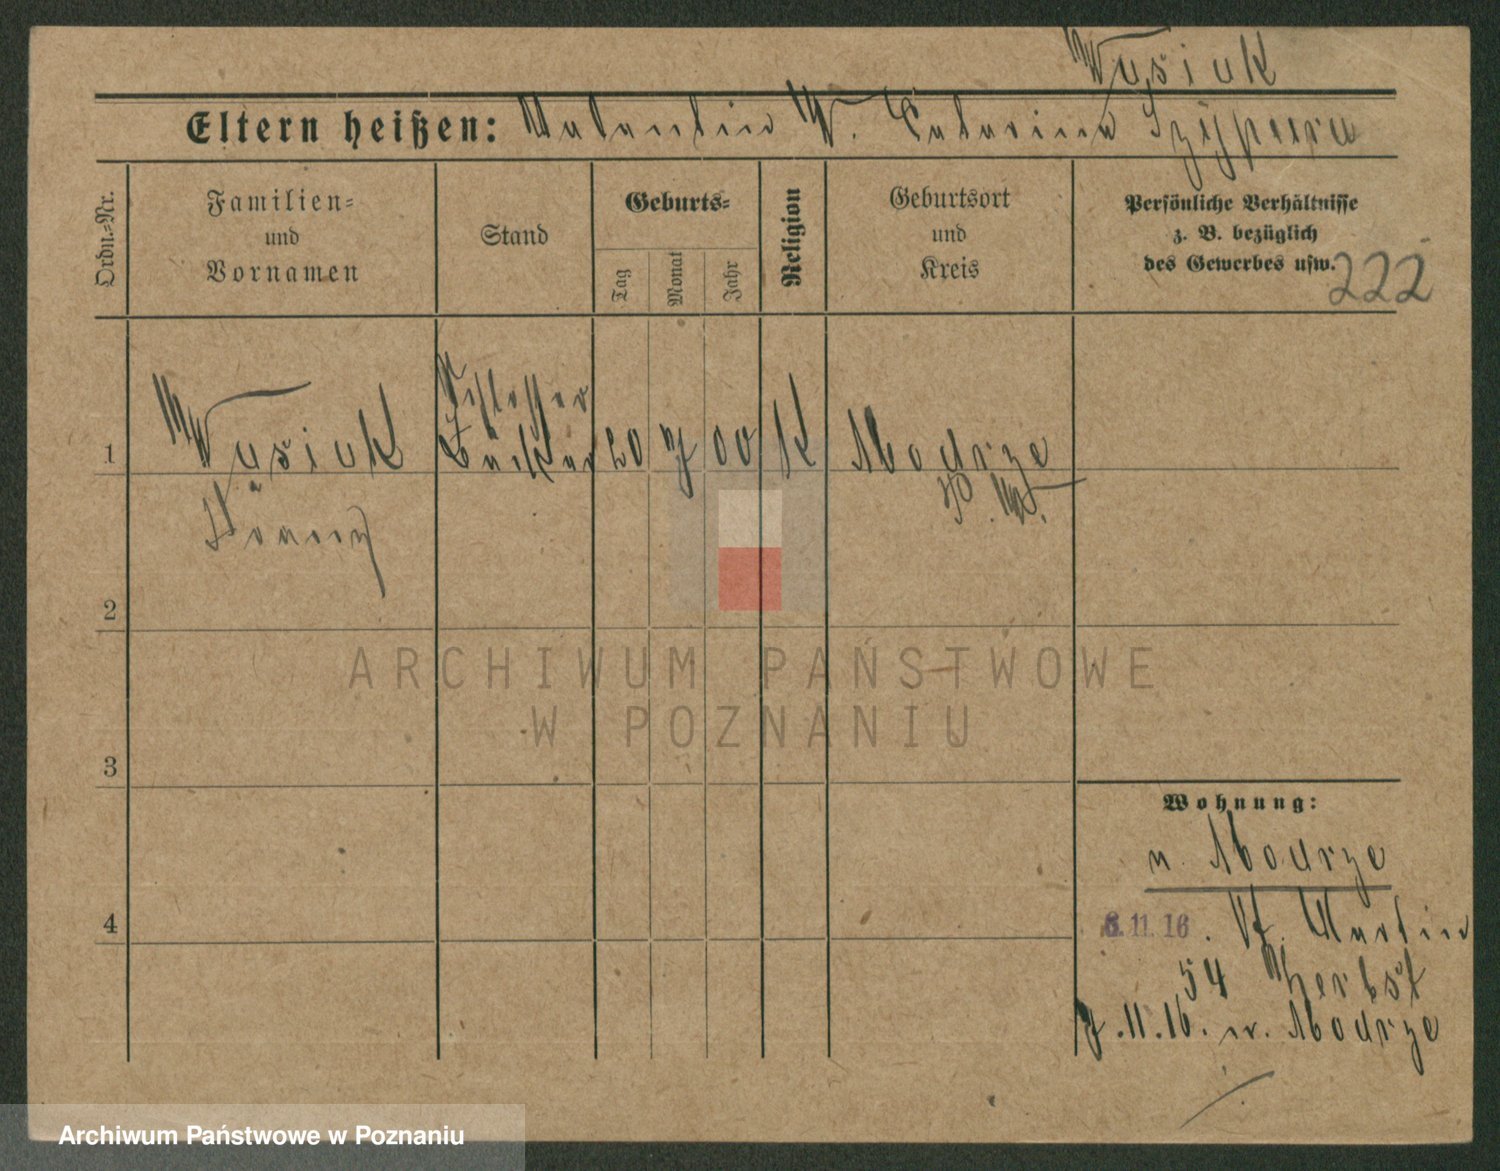 Wusiak
Eltern heißen: Valentin W. Catarina
Ordn.=Nr.
Familien=
und
Vornamen
Stand
Geburts=
Tag
Monat
Jahr
Religion
Geburtsort
und
Kreis
Persönliche Verhältnisse
z. B. bezüglich
des Gewerbes usw.
222
Schlosser
1 Wusiak 20 7 00 K Modrze
P. W.
2
3
4
Wohnung:
n. Modrze
6.11.16. St. Martin
54 Herbst
7.11.16. n. Modrze
ARCHIWUM PAŃSTWOWE
W POZNANIU
Archiwum Państwowe w Poznaniu